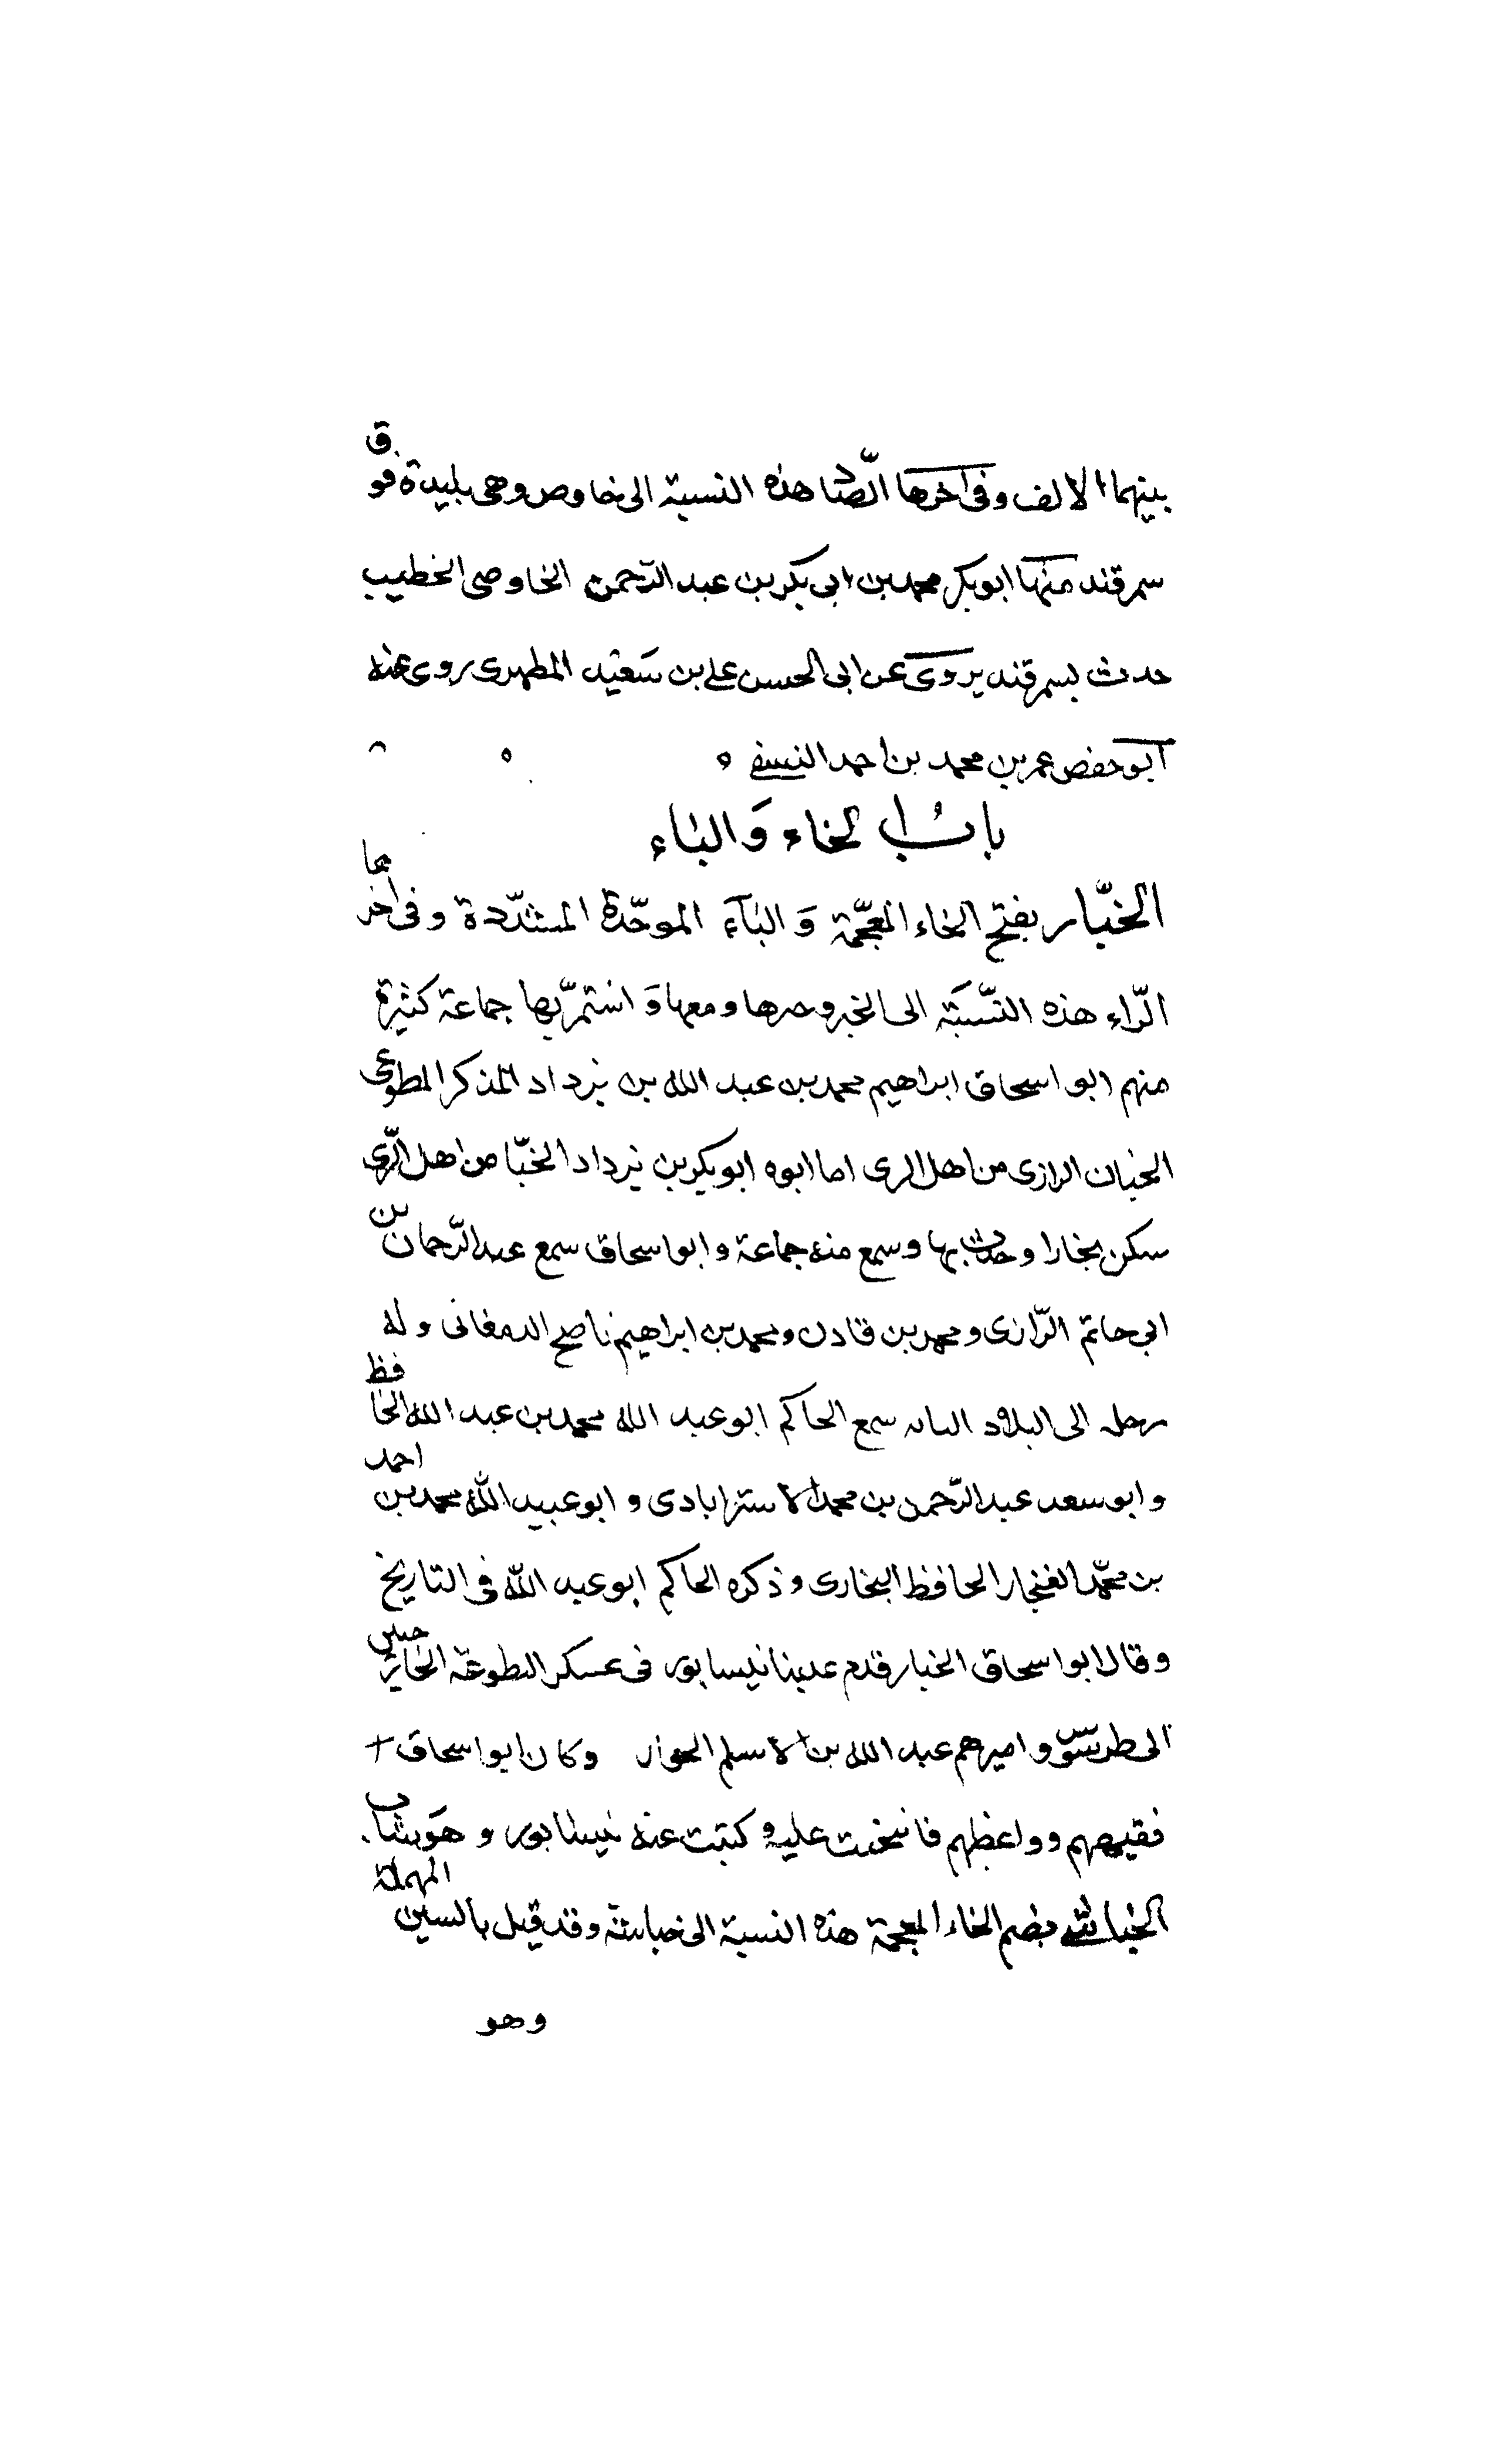 بينهما الالف وفى اخرها الصّاد هذه النسبة الى خاوص وهى بليدة فوق
سمرقند منها ابوبكر محمد بن ابى بكر بن عبد الرّحمن الخاوصى الخطيب
حدث بسمرقند يروى عن ابى الحسن على بن سَعيد المطهرى روى عنه
ابو حفص عمر بن محمد بن احمد النسفى ه ه
بابُ الخاء وَالباء
الخبّار بفتح الخاء المعجّمة وَ البآء الموحّدة المشدّدة وفى اخرها
الرّاء هذه النّسَبَة الى الخبر و ومعها وَ اشتمرّ بها جماعة كثيرة
منهم ابو اسحاق ابراهيم محمد بن عبد الله بن يزداد المذكر المطوعى
الرازى من اهل الرى اما ابوه ابوبكر بن يزداد الخبّا من اهل الرّى
سكن بخارا وحدث بها وسمع منه جماعة وابو اسحاق سمع عبد الرّحمان بن
ابى حاتم الرّازى ومحمد بن قادن ومحمد بن ابراهيم ناصح الدمغانى وله
رحله الى البلاد سمع الحاكم ابو عبد الله محمد بن عبد الله الحافظ
وابو سعد عبد الرّحمن بن محمد الاسترابادى و ابو عبيد اللّه محمد بن احمد
بن محمّد الغنجار الحافظ البخارى وذكره الحاكم ابو عبد اللّه فى التاريخ
وقال ابو اسحاق الخبار قدم علينا نيسابور فى عسكر المطوعة
الى طرسوّس واميرهم عبد الله بن الاسلم وكان ابو اسحاق
فقيههم وواعظهم عليه وكتبت عنه نيسابور و هوَ شاب
الخباشى بضم الخاء المعجمة هذه النسبة الى خباشة وقد قيل بالسين المهملة
وهو